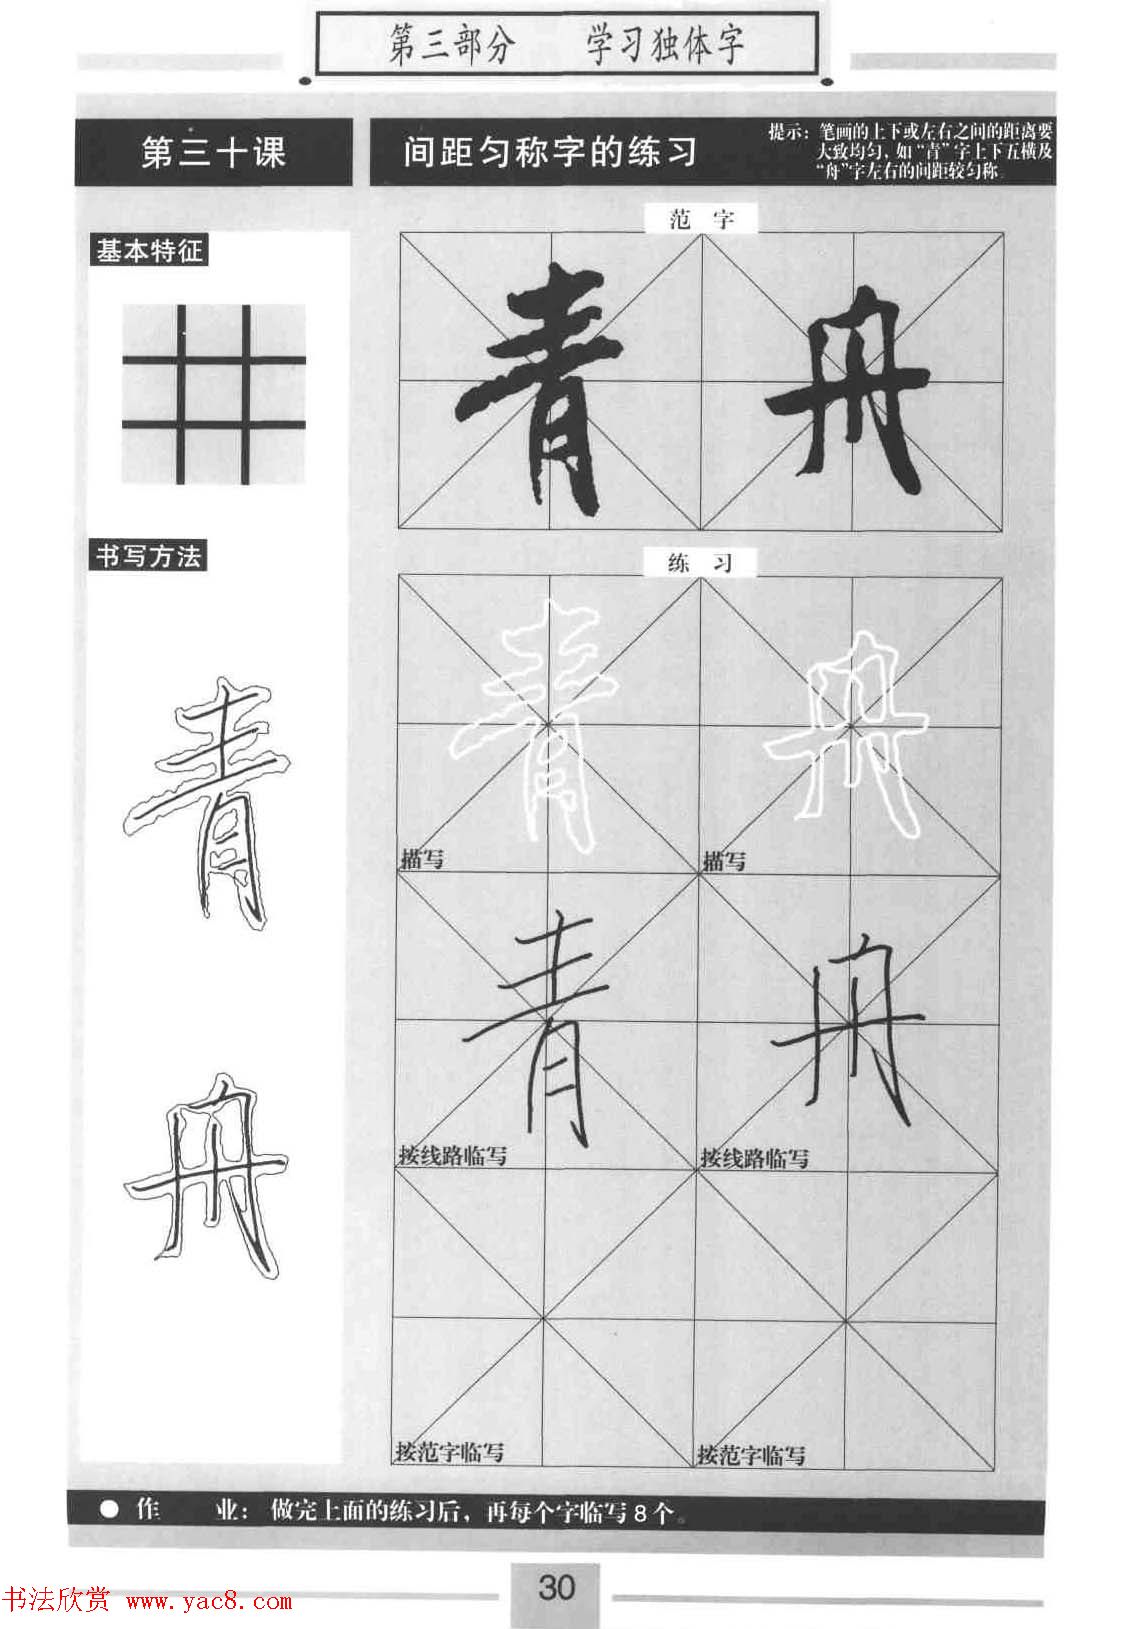 第三部分 学习独体字
第三十课
间距匀称字的练习
提示：笔画的上下或左右之间的距离要
大致均匀，如“青”字上下五横及
“舟”字左右的间距较匀称。
基本特征
范 字
青 舟
书写方法
青
舟
练 习
青 舟
描写 描写
青 舟
按线路临写 按线路临写
按范字临写 按范字临写
● 作 业：做完上面的练习后，再每个字临写8个。
30
书法欣赏 www.yac8.com